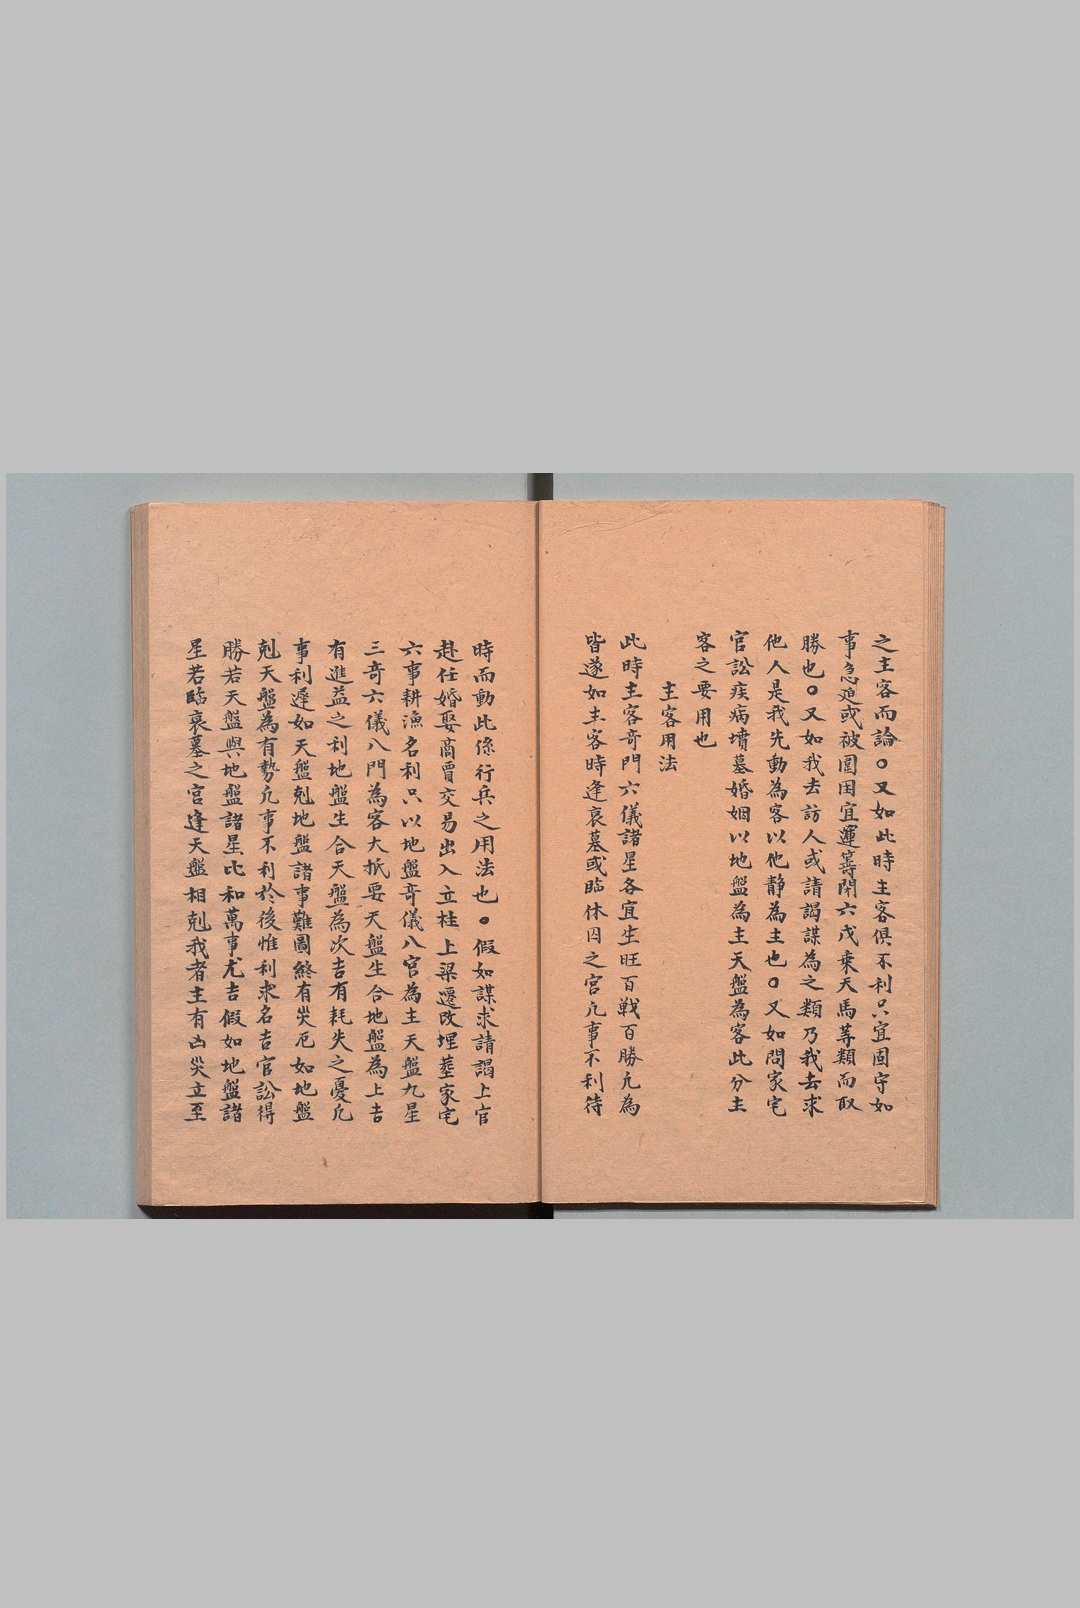 之主客而論○又如此時主客俱不利只宜固守如
事急迫或被圍困宜運籌閉六戊乗天馬䓁類而取
勝也○又如我去訪人或請謁謀為之類乃我去求
他人是我先動為客以他静為主也○又如問家宅
官訟疾病墳墓婚姻以地盤為主天盤為客此分主
客之要用也
主客用法
此時主客竒門六儀諸星各宜生旺百戦百勝凢為
皆遂如主客時逢衰墓或臨休囚之宮凢事不利待
時而動此係行兵之用法也○假如謀求請謁上官
赴任婚娶商賈交易出入立柱上梁遷改埋塟家宅
六事耕漁名利只以地盤竒儀八宮為主天盤九星
三竒六儀八門為客大抵要天盤生合地盤為上吉
有進益之利地盤生合天盤為次吉有耗失之憂凢
事利遲如天盤剋地盤諸事難圖終有災厄如地盤
剋天盤為有勢凢事不利於後惟利求名吉官訟得
勝若天盤與地盤諸星比和萬事尤吉假如地盤諸
星若臨衰墓之宮逢天盤相剋我者主有凶災立至